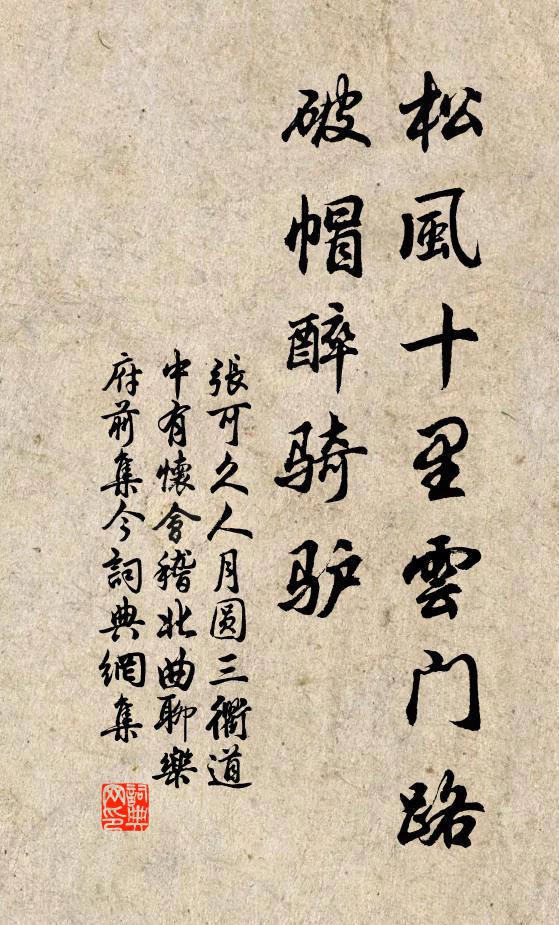 松風十里雲门路
破帽醉骑驴
張可久人月圆三衢道
中有懷會稽北曲聊樂
府前集今詞典網集
詞典网印